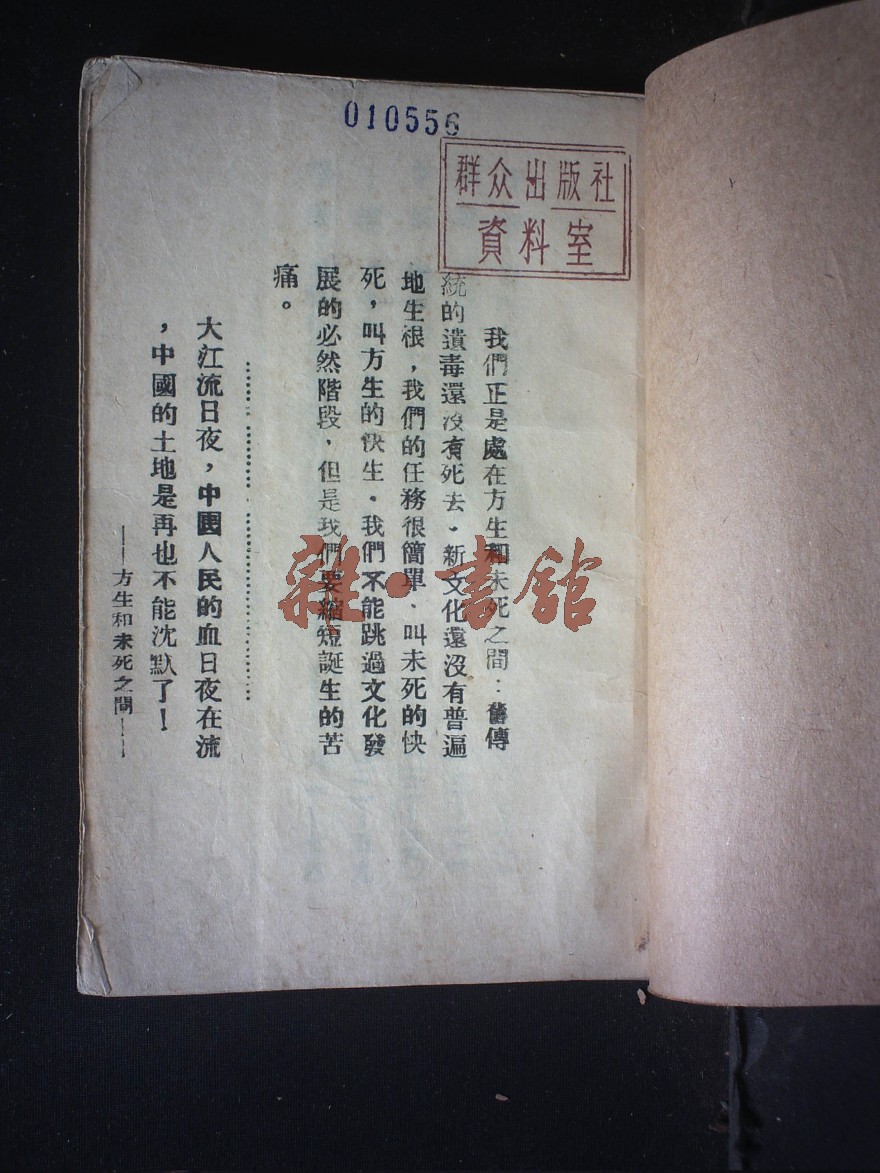 010556
群众出版社
資料室
我們正是處在方生和未死之間：舊傳
統的遺毒還沒有死去，新文化還沒有普遍
地生根，我們的任務很簡單，叫未死的快
死，叫方生的快生。我們不能跳過文化發
展的必然階段，但是我們要縮短誕生的苦
痛。
……………………………………
大江流日夜，中國人民的血日夜在流
，中國的土地是再也不能沈默了！
——方生和未死之間——
雜·書館